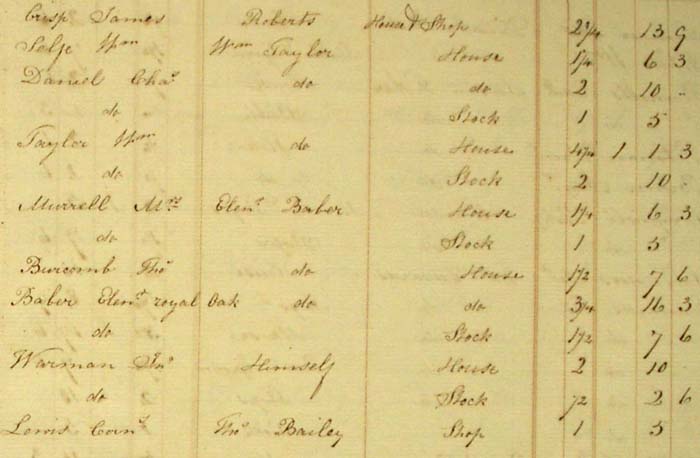 Crisp James Roberts House & Shop 2 3/4 13 9
Selfe Wm Wm Taylor House 1 1/4 6 3
Daniel Chas do do 2 10 -
do Stock 1 5
Taylor Wm do House 4 1/4 1 1 3
do Stock 2 10
Murrell Mrs Elenr Baber House 1 1/4 6 3
do Stock 1 5
Thos do House 1 1/2 7 6
Baber Elenr royal Oak do do 3 1/4 16 3
do Stock 1 1/2 7 6
Warman Jno Himself House 2 10
do Stock 1/2 2 6
Lewis Corns Thos Bailey Shop 1 5